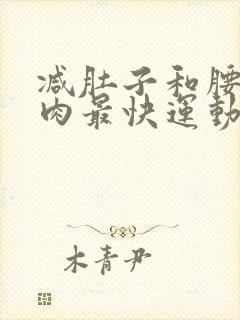 减肚子和腰
肉最快運動
木青尹